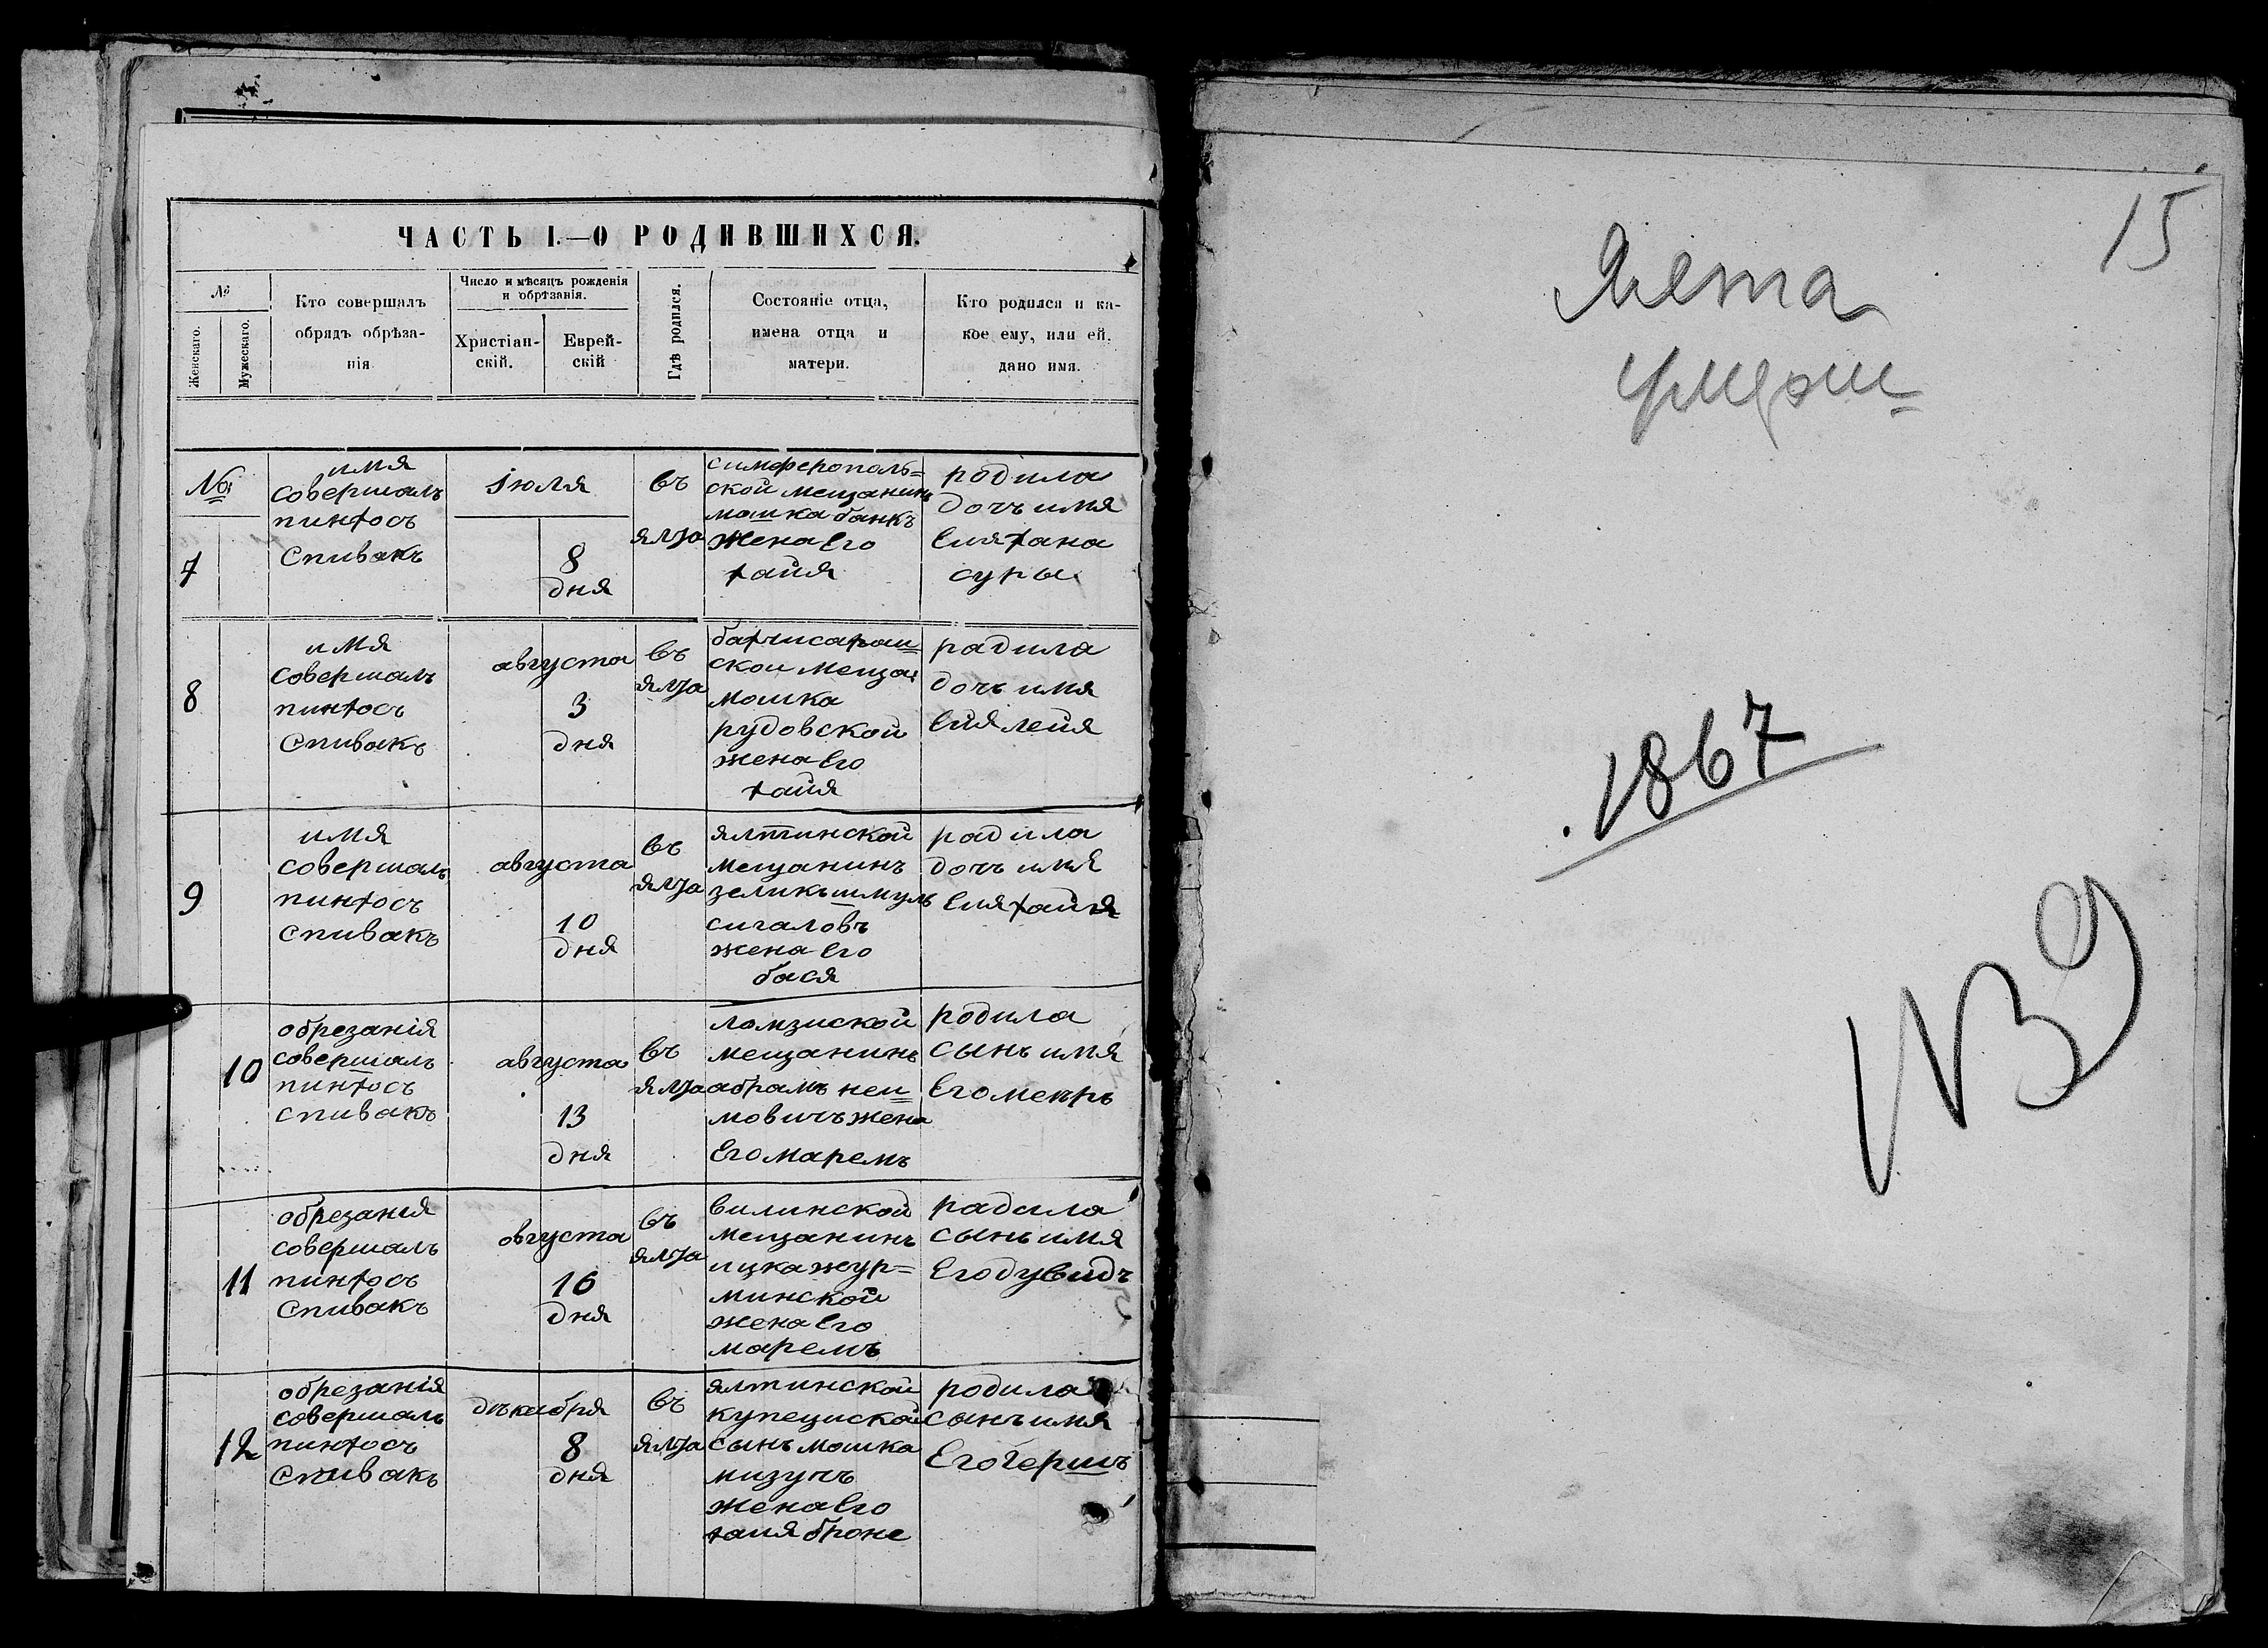 ЧАСТЬ I.—О РОДИВШИХСЯ.
№
Женскаго.
Мужескаго.
Кто совершалъ
обрядъ обрѣза-
нія
Число и мѣсяцъ рожденія
и обрѣзанія.
Христіан-
скій.
Еврей-
скій
Гдѣ родился.
Состояніе отца,
имена отца и
матери.
Кто родился и ка-
кое ему, или ей,
дано имя.
№
7
имя
совершалъ
пинхосъ
Спивакъ
Iюля
8
дня
въ
ялта
симферополь=
ской мещанинъ
мошка банкъ
жена Его
хаия
родила
дочъ имя
Еия хана
суры
8
имя
совершалъ
пинхосъ
Спивакъ
августа
3
дня
въ
ялта
бахчисараи=
скои меща
мошка
рудовской
жена Его
хаия
радила
дочъ имя
Еия лейя
9
имя
совершалъ
пинхосъ
спивакъ
августа
10
дня
въ
ялта
ялтинской
мещанинъ
зеликъ шмуль
сигаловъ
жена Его
бася
радила
дочъ имя
Еия хайя
10
обрезанія
совершалъ
пинхосъ
спивакъ
августа
13
дня
въ
ялта
ломзиской
мещанинъ
абрамъ неи=
мовичъ жена
Его маремъ
родила
сынъ имя
Его меиръ
11
обрезания
совершалъ
пинхосъ
Спивакъ
овгуста
16
дня
въ
ялта
вилинской
мещанинъ
ицка жур=
минской
жена Его
маремъ
радила
сынъ имя
Его дувидъ
12
обрезанія
совершалъ
пинхосъ
Спивакъ
дѣкабря
8
дня
въ
ялта
ялтинской
купециской
сынъ мошка
мизучъ
жена Его
хаия броне
родила
сынъ имя
Его гершъ
15
Ялта
умерш
1867